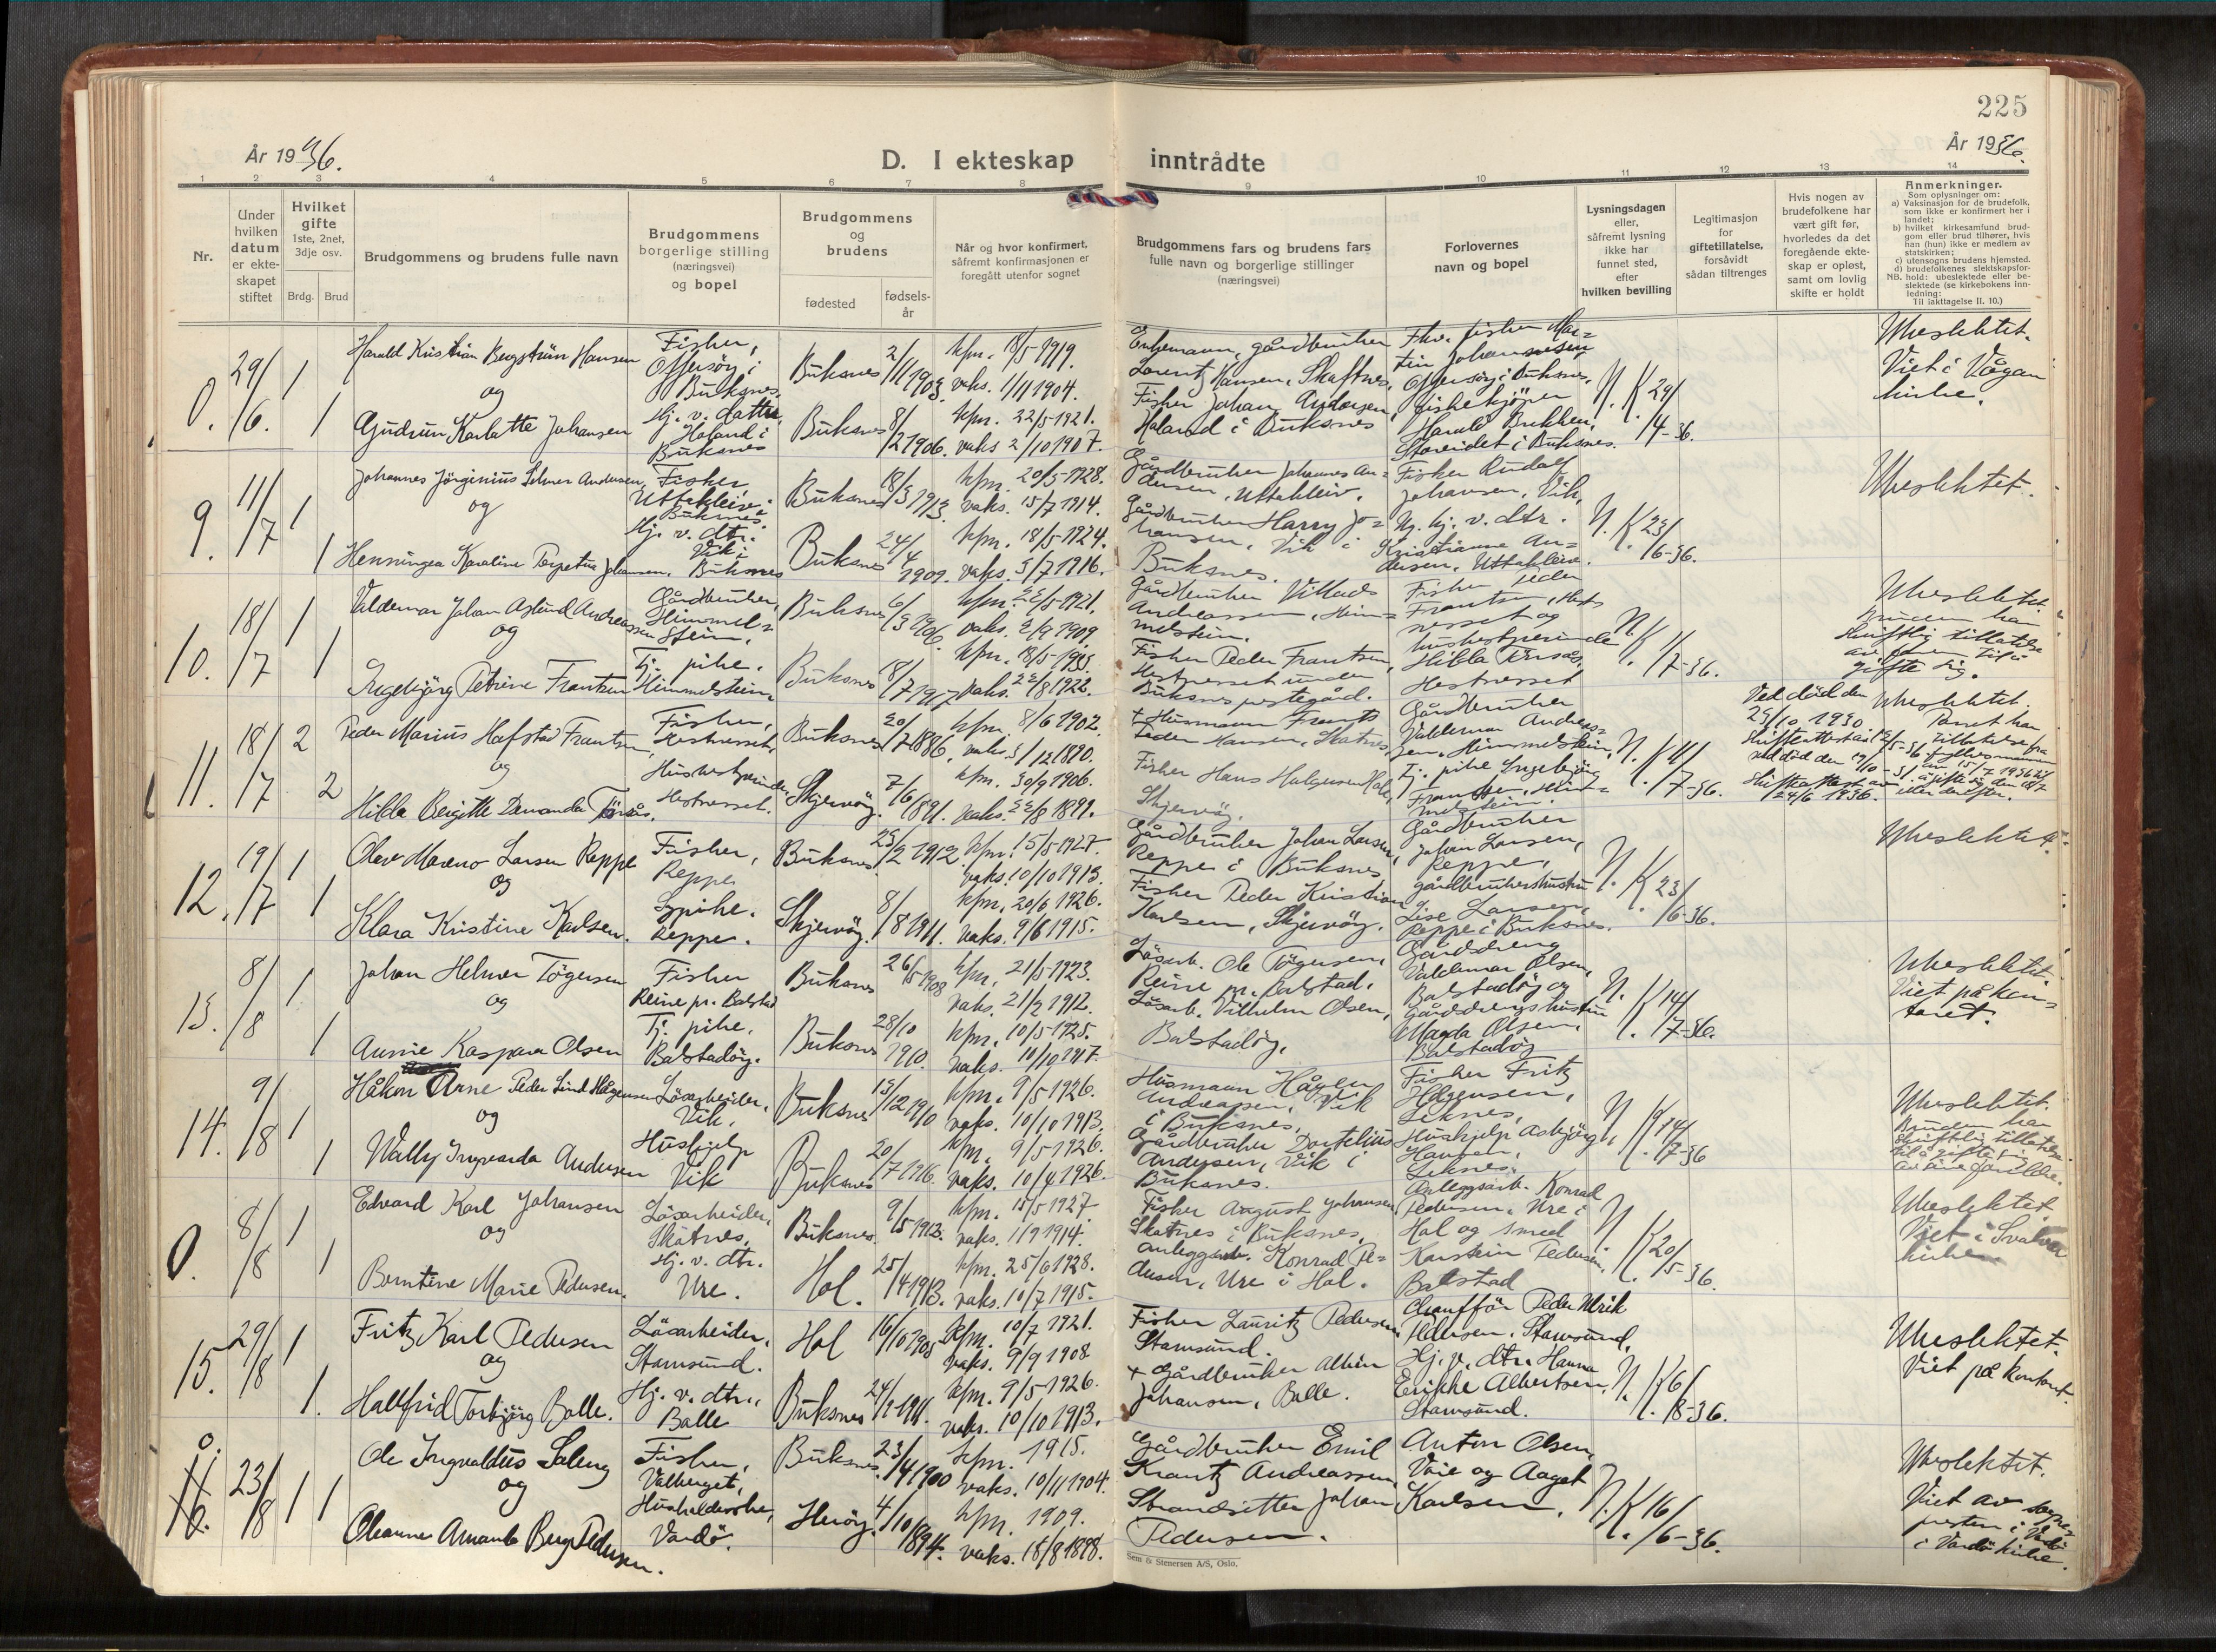 225
År 1936.
År 1936.
D. I ekteskap inntrådte
1 2 3 4 5 6 7 8 9 10 11 12 13 14
Nr.
Under hvilken datum er ekteskapet stiftet
Hvilket gifte 1ste, 2net, 3dje osv.
Brdg. Brud
Brudgommens og brudens fulle navn
Brudgommens borgerlige stilling (næringsvei) og bopel
Brudgommens og brudens
fødested
fødsels-år
Når og hvor konfirmert, såfremt konfirmasjonen er foregått utenfor sognet
Brudgommens fars og brudens fars fulle navn og borgerlige stillinger (næringsvei)
Forlovernes navn og bopel
Lysningsdagen eller, såfremt lysning ikke har funnet sted, efter hvilken bevilling
Legitimasjon for giftetillatelse, forsåvidt sådan tiltrenges
Hvis nogen av brudefolkene har vært gift før, hvorledes da det foregående ekteskap er opløst, samt om lovlig skifte er holdt
Anmerkninger.
Som oplysninger om:
a) Vaksinasjon for de brudefolk, som ikke er konfirmert her i landet;
b) hvilket kirkesamfund brudgom eller brud tilhører, hvis han (hun) ikke er medlem av statskirken;
c) utensogns brudens hjemsted.
d) brudefolkenes slektskapsforhold: ubeslektede eller beslektede (se kirkebokens innledning:
NB. Til iakttagelse II. 10.)
0. 29/6. 1 Harald Kristian Bergström Hansen Fisker, Offersöy i Buksnes. Buksnes 2/11 1903. kfm. 18/5-1919. vaks. 1/11 1904.
og
1 Gudrun Karlotte Johansen Hj. v. datter, Holand i Buksnes Buksnes 8/12 1906. kfm. 22/5-1921. vaks 2/10 1907.
Enkemann, gårdbruker Lorentz Hansen, Skaftnes,
Fisker Johan Andersen, Holand i Buksnes
Fhv. fisker Martin Johannesen Offersöy i Buksnes, fiskekjöper Harald Bukken, Storeidet i Buksnes.
N. K. 29/4-36.
Ubeslektet. Viet i Vågan kirke.
9. 11/7 1 Johannes Jörginius Selmer Andersen, Fisker Uttakleiv i Buksnes. Buksnes 18/3 1913. kfm. 20/5-1928. vaks. 15/7 1914.
og
1 Henningea Karoline Perpetua Johansen. Hj. v. dtr. Vik i Buksnes Buksnes 24/4 1909. kfm. 18/5-1924. vaks. 5/7 1916.
Gårdbruker Johannes Andersen, Uttakleiv.
Gårdbruker Harry Johansen, Vik i Buksnes.
Fisker Rudolf Johansen, Vik, Ug. hj. v. dtr. Kristianne Andersen, Uttakleiv.
N. K. 23/6-36.
Ubeslektet.
10. 18/7 1 Valdemar Johan Aslund Andreassen Gårdbruker, Himmelstein. Buksnes 6/3 1906. kfm. 22/5-1921. vaks. 2/9 1909.
og
1 Ingebjörg Petrine Frantsen Tj. pike. Himmelstein. Buksnes 18/7 1917 kfm. 18/5-1933. vaks. 22/8 1922.
Gårdbruker Villads Andreassen, Himmelstein.
Fisker Peder Frantsen, Hestnesset under Buksnes prestegård.
Fisker Peder Frantsen, Hestnesset og husbestyrerinde Hilda Törsås, Hestnesset
N. K. 1/7-36.
Ubeslektet. Bruden har skriftlig tillatelse av faren til å gifte sig.
11. 18/7 2 Peder Marius Hafstad Frantsen Fisker, Hestnesset. Buksnes 20/7 1886. kfm. 8/6 1902. vaks. 5/12 1890.
og
2 Hilda Bergitte Demanda Törsås. Husbestyrerinde, Hestnesset. Skjervöy. 7/6 1891. kfm. 30/9 1906. vaks. 22/8 1899.
+ Husmann Frants Peder Hansen, Skotnes,
Fisker Hans Holgersen Hole, Skjervöy.
Gårdbruker Valdemar Andreassen, Himmelstein, Tj. pike Ingebjörg Frantsen, Himmelstein.
N. K. 11/7-36.
Ved död den 29/10 1930. Skifteattest av 12/5-36. Ved död den 17/10-31. Skifteattest av 24/6 1936.
Ubeslektet. Parret har tillatelse fra fylkesmannen av 15/7 1936 til å gifte sig den 18/7 eller derefter.
12. 19/7 1 Olav Moreno Larsen Reppe Fisker, Reppe Buksnes. 23/2 1912. kfm. 15/5-1927. vaks. 10/10 1913.
og
1 Klara Kristine Karlsen. Tj. pike. Reppe. Skjervöy. 8/8 1911. kfm. 20/6 1926. vaks. 9/6 1915.
Gårdbruker Johan Larsen, Reppe i Buksnes
Fisker Peder Kristian Karlsen, Skjervöy.
Gårdbruker Johan Larsen, Reppe, gårdbrukershustru Lise Larsen, Reppe i Buksnes.
N. K. 23/6-36.
Ubeslektet.
13. 8/8 1 Johan Helmer Tögersen Fisker Reine pr. Balstad Buksnes 26/5 1903 kfm. 21/5-1923. vaks. 21/2 1912.
og
1 Annie Kaspara Olsen Tj. pike. Balstadöy. Buksnes 28/10 1910. kfm. 10/5-1925. vaks. 10/10 1917.
Lösarb. Ole Tögersen, Reine pr. Balstad.
Lösarb. Vilhelm Olsen, Balstadöy.
Gårddreng Valdemar Olsen, Balstadöy og gårddrengshustru Magda Olsen, Balstadöy
N. K. 14/7-36.
Ubeslektet. Viet på kontoret.
14. 9/8 1 Håkon Arne Peder Lind Hågensen Lösarbeider, Vik. Buksnes 15/12 1910 kfm. 9/5 1926. vaks. 10/10 1913.
og
1 Wally Ingvarda Andersen Hushjelp Vik Buksnes 20/7 1916. kfm. 9/5 1926. vaks. 10/4 1926.
Husmann Hågen Andreassen, Vik i Buksnes,
Gårdbruker Dortelius Andersen, Vik i Buksnes.
Fisker Fritz Hågensen, Leknes, Hushjelp Asbjörg Hansen, Leknes.
N. K. 14/7-36
Ubeslektet. Bruden har skriftlig tillatelse til å gifte sig av sine foreldre.
0. 8/8 1 Edvard Karl Johansen Lösarbeider, Skotnes. Buksnes. 9/5 1913. kfm. 15/5 1927. vaks. 1/9 1914.
og
1 Berntine Marie Pedersen. Hj. v. dtr. Ure. Hol. 25/4 1913. kfm. 25/6 1928. vaks. 10/7 1915.
Fisker August Johansen, Skotnes i Buksnes,
Anleggsarb. Konrad Pedersen, Ure i Hol.
Anleggsarb. Konrad Pedersen, Ure i Hol og smed Karstein Pedersen, Balstad
N. K. 20/5-36.
Ubeslektet Viet i Svolvær kirke
15. 29/8 1 Fritz Karl Pedersen Lösarbeider, Stamsund. Hol 16/6 1908 kfm. 10/7 1921. vaks. 9/9 1908
og
1. Hallfrid Torbjörg Bolle. Hj. v. dtr., Bolle Buksnes 24/2 1911. kfm. 9/5 1926. vaks. 10/10 1913.
Fisker Lauritz Pedersen Stamsund.
+ Gårdbruker Albin Johansen, Bolle.
Chaufför Peder Ulrik Pedersen, Stamsund, Hj. v. dtr. Hanna Erikke Albertsen, Stamsund.
N. K. 6/8-36.
Ubeslektet. Viet på kontoret.
0. 16. 23/8 1 1 Ole Ingvaldus Soleng Fisker, Valberget, Buksnes. 23/4 1900 kfm. 1915. vaks. 10/11 1904.
og
Oleanne Amanda Berg Pedersen. Husholderske, Vardö. Heröy. 4/10 1894. kfm. 1909. vaks. 18/8 1898.
Gårdbruker Emil Krantz Andreassen,
Strandsitter Johan Pedersen.
Anton Olsen, Vaie og Aagot Karlsen.
N. K. 16/6-36.
Ubeslektet. Viet av sognepresten i Vardö i Vardö kirke.
Sem & Stenersen A/S, Oslo.